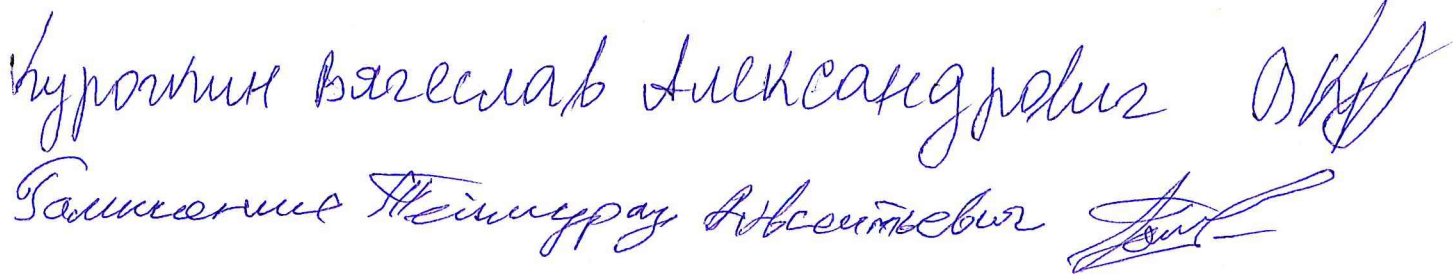 Курочкин Вячеслав Александрович
Теймураз Авксентьевич